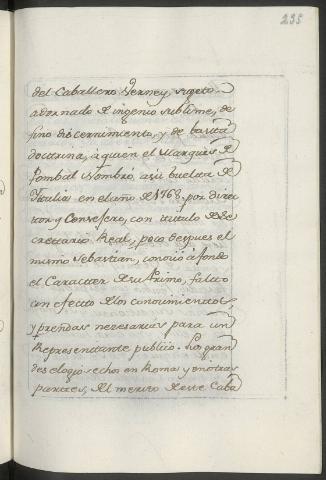 235
del Caballero Verney, sugeto
adornado de ingenio sublime, de
fino discernimiento, y de basta
doctrina, à quien el Marques de
Pombal Nombró, a su buelta de
Italia en el año de 1768, por direc
tor y Consejero, con titulo de Se
crettario Real, poco despues el
mismo Sebastian, conoció à fondo
el Caracter de su Primo, falto
con efecto de los conocimientos
y prendas necesarias para un
Representtante publico. Los gran
des elogios echos en Roma y en otras
partes, del merito de este Caba